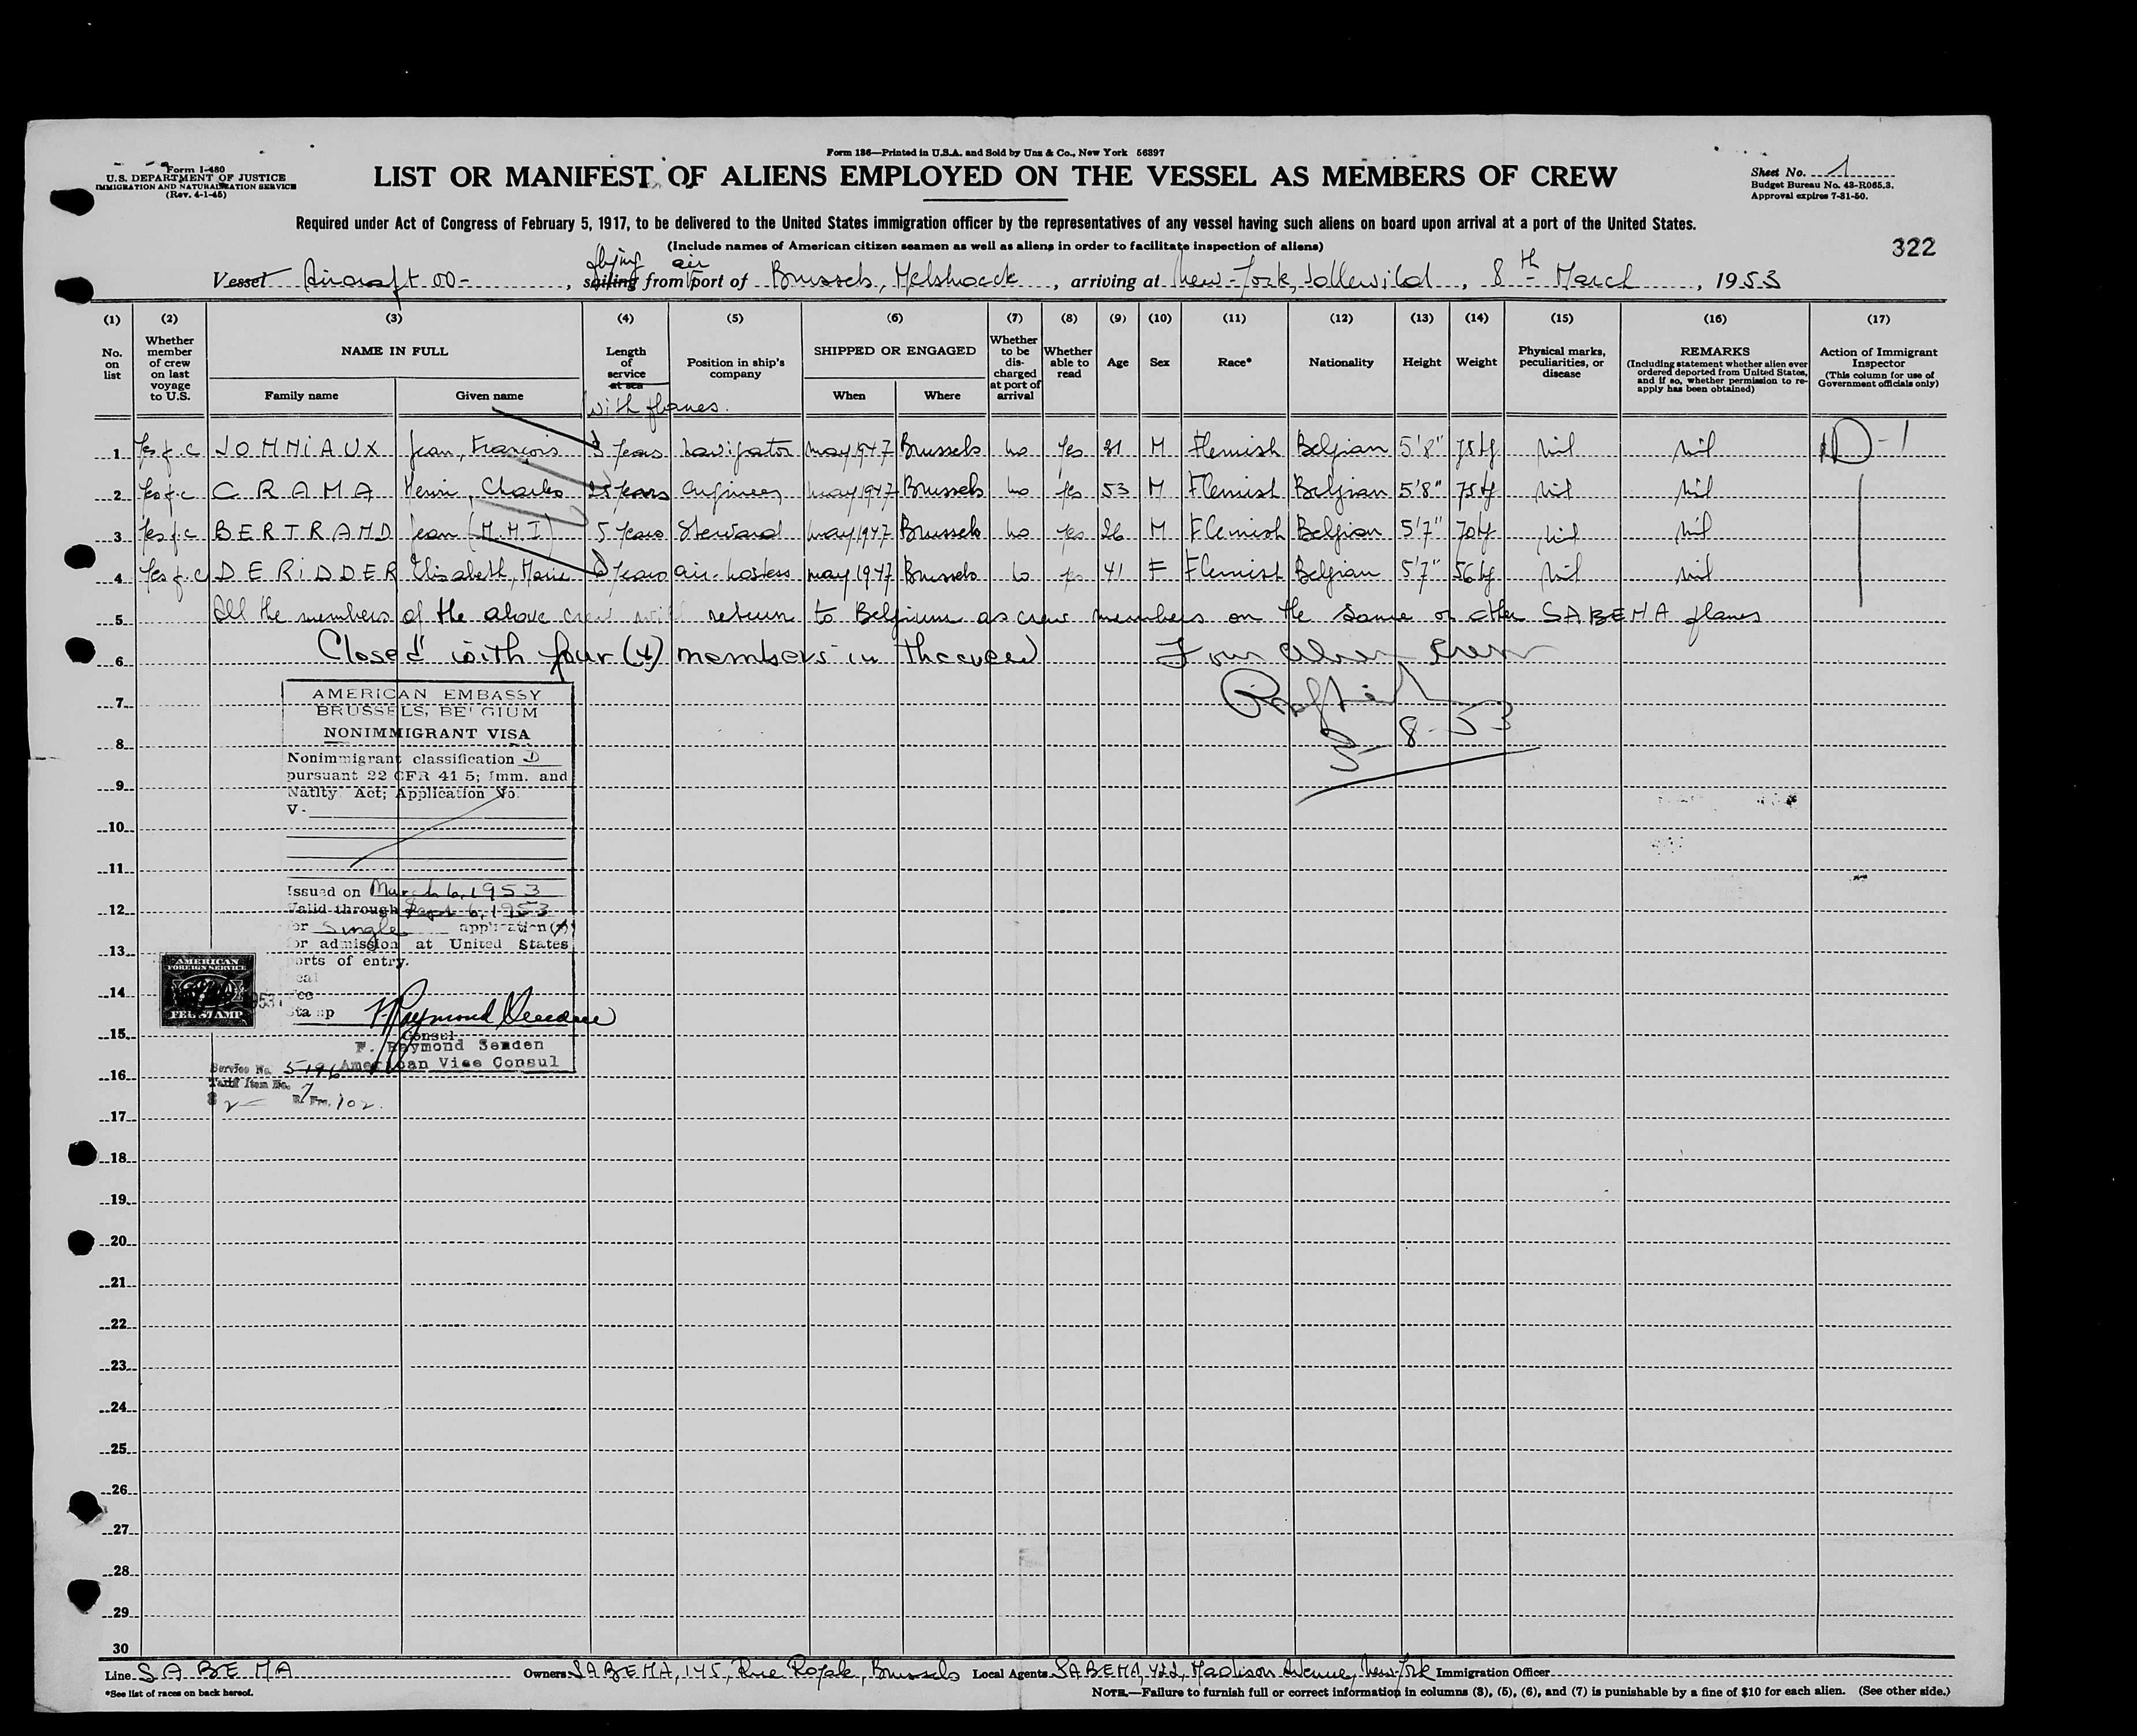 Form I-480
U.S. DEPARTMENT OF JUSTICE
IMMIGRATION AND NATURALIZATION SERVICE
(Rev. 4-1-45)
Form 136—Printed in U.S.A. and Sold by Unz & Co., New York 56397
LIST OR MANIFEST OF ALIENS EMPLOYED ON THE VESSEL AS MEMBERS OF CREW
Sheet No. 1
Budget Bureau No. 43-R065.3.
Approval expires 7-31-50.
Required under Act of Congress of February 5, 1917, to be delivered to the United States immigration officer by the representatives of any vessel having such aliens on board upon arrival at a port of the United States.
(Include names of American citizen seamen as well as aliens in order to facilitate inspection of aliens)
322
flying air
Vessel Aircraft OO- , sailing from port of Brussels, Melsbroeck , arriving at New-York, Idlewild , 8th March , 1953
(1) (2) (3) (4) (5) (6) (7) (8) (9) (10) (11) (12) (13) (14) (15) (16) (17)
No. on list
Whether member of crew on last voyage to U.S.
NAME IN FULL
Family name Given name
Length of service at sea
with planes.
Position in ship's company
SHIPPED OR ENGAGED
When Where
Whether to be discharged at port of arrival
Whether able to read
Age Sex Race* Nationality Height Weight
Physical marks, peculiarities, or disease
REMARKS
(Including statement whether alien ever ordered deported from United States, and if so, whether permission to reapply has been obtained)
Action of Immigrant Inspector
(This column for use of Government officials only)
1 Yes f.c JOMMIAUX Jean, François years navigator may 1947 Brussels no Yes 31 M Flemish Belgian 5'8" 75 kg nil nil D-1
2 Yes f.c CRAMA Henri, Charles 25 years engineer may 1947 Brussels no yes 53 M Flemish Belgian 5'8" 75 kg nil nil
3 Yes f.c BERTRAND Jean (M.H.I) 5 years Steward may 1947 Brussels no yes 26 M Flemish Belgian 5'7" 70 kg nil nil
4 Yes f.c DERIDDER Elisabeth, Marie years air-hostess may 1947 Brussels no yes 41 F Flemish Belgian 5'7" 56 kg nil nil
5 All the members of the above crew will return to Belgium as crew members on the same or other SABENA planes
6 Closed with four (4) members in the crew Four Alien Crew
7
3-8-53
8
9
10
11
12
13
14
15
16
17
18
19
20
21
22
23
24
25
26
27
28
29
30
AMERICAN EMBASSY
BRUSSELS, BELGIUM
NONIMMIGRANT VISA
Nonimmigrant classification D
pursuant 22 CFR 41 5; Imm. and
Natlty. Act; Application No.
V-
Issued on March 6, 1953
Valid through Sept 6, 1953
for Single application(s)
for admission at United States
ports of entry.
Seal
Fee
Stamp
AMERICAN
FOREIGN SERVICE
FEE STAMP
F. Raymond Senden
Consul
F. Raymond Senden
American Vice Consul
Service No. 5196
Tariff Item No. 7
$ 2— B. Frs. 102.
Line SABENA Owners SABENA, 145, Rue Royale, Brussels Local Agents SABENA, 422, Madison Avenue, New-York Immigration Officer
*See list of races on back hereof.
NOTE.—Failure to furnish full or correct information in columns (3), (5), (6), and (7) is punishable by a fine of $10 for each alien. (See other side.)